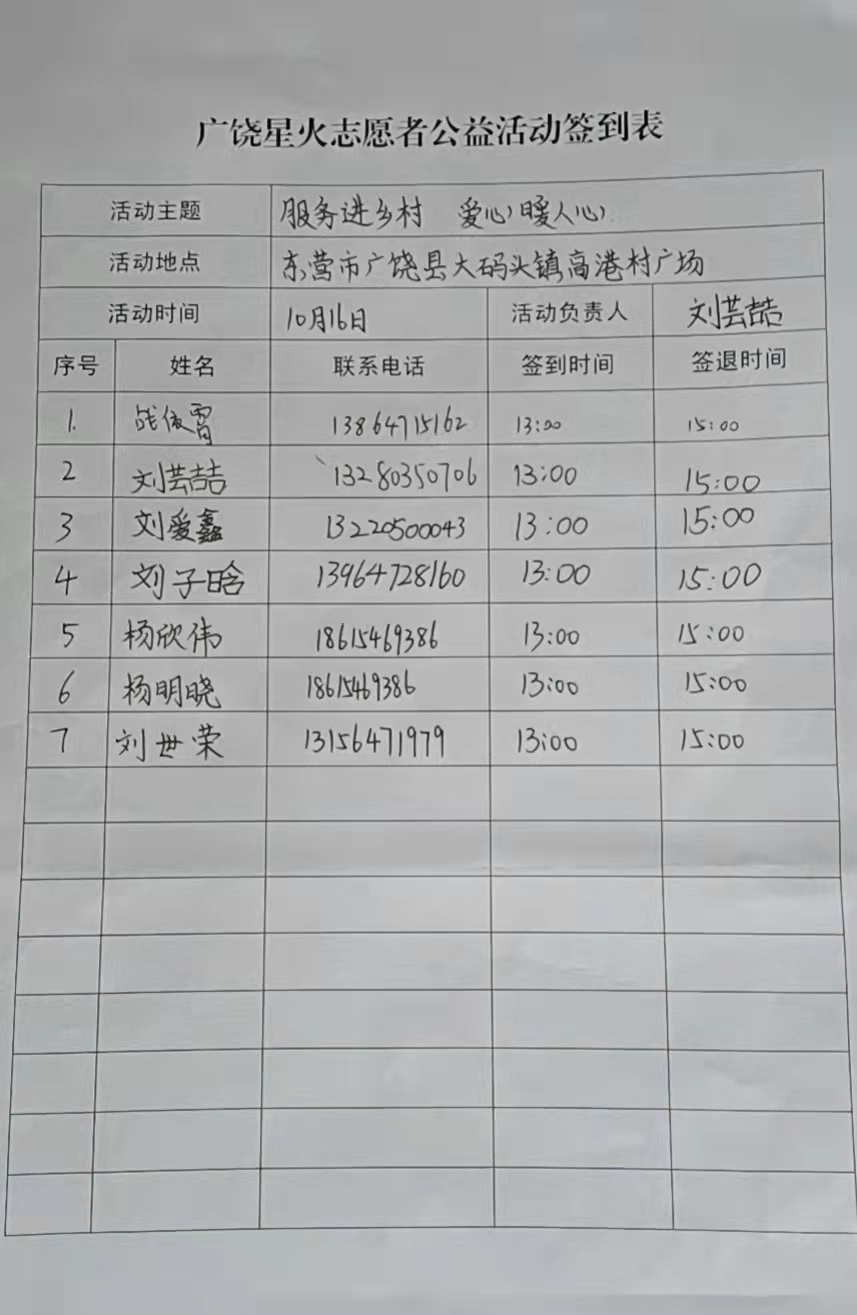 广饶星火志愿者公益活动签到表
活动主题 服务进乡村 爱心暖人心
活动地点 东营市广饶县大码头镇高港村广场
活动时间 10月16日 活动负责人 刘芸喆
序号 姓名 联系电话 签到时间 签退时间
1. 战依霄 13864715162 13:00 15:00
2 刘芸喆 13280350706 13:00 15:00
3 刘爱鑫 13220500043 13:00 15:00
4 刘子晗 13964728160 13:00 15:00
5 杨欣伟 18615469386 13:00 15:00
6 杨明晓 18615469386 13:00 15:00
7 刘世荣 13156471979 13:00 15:00